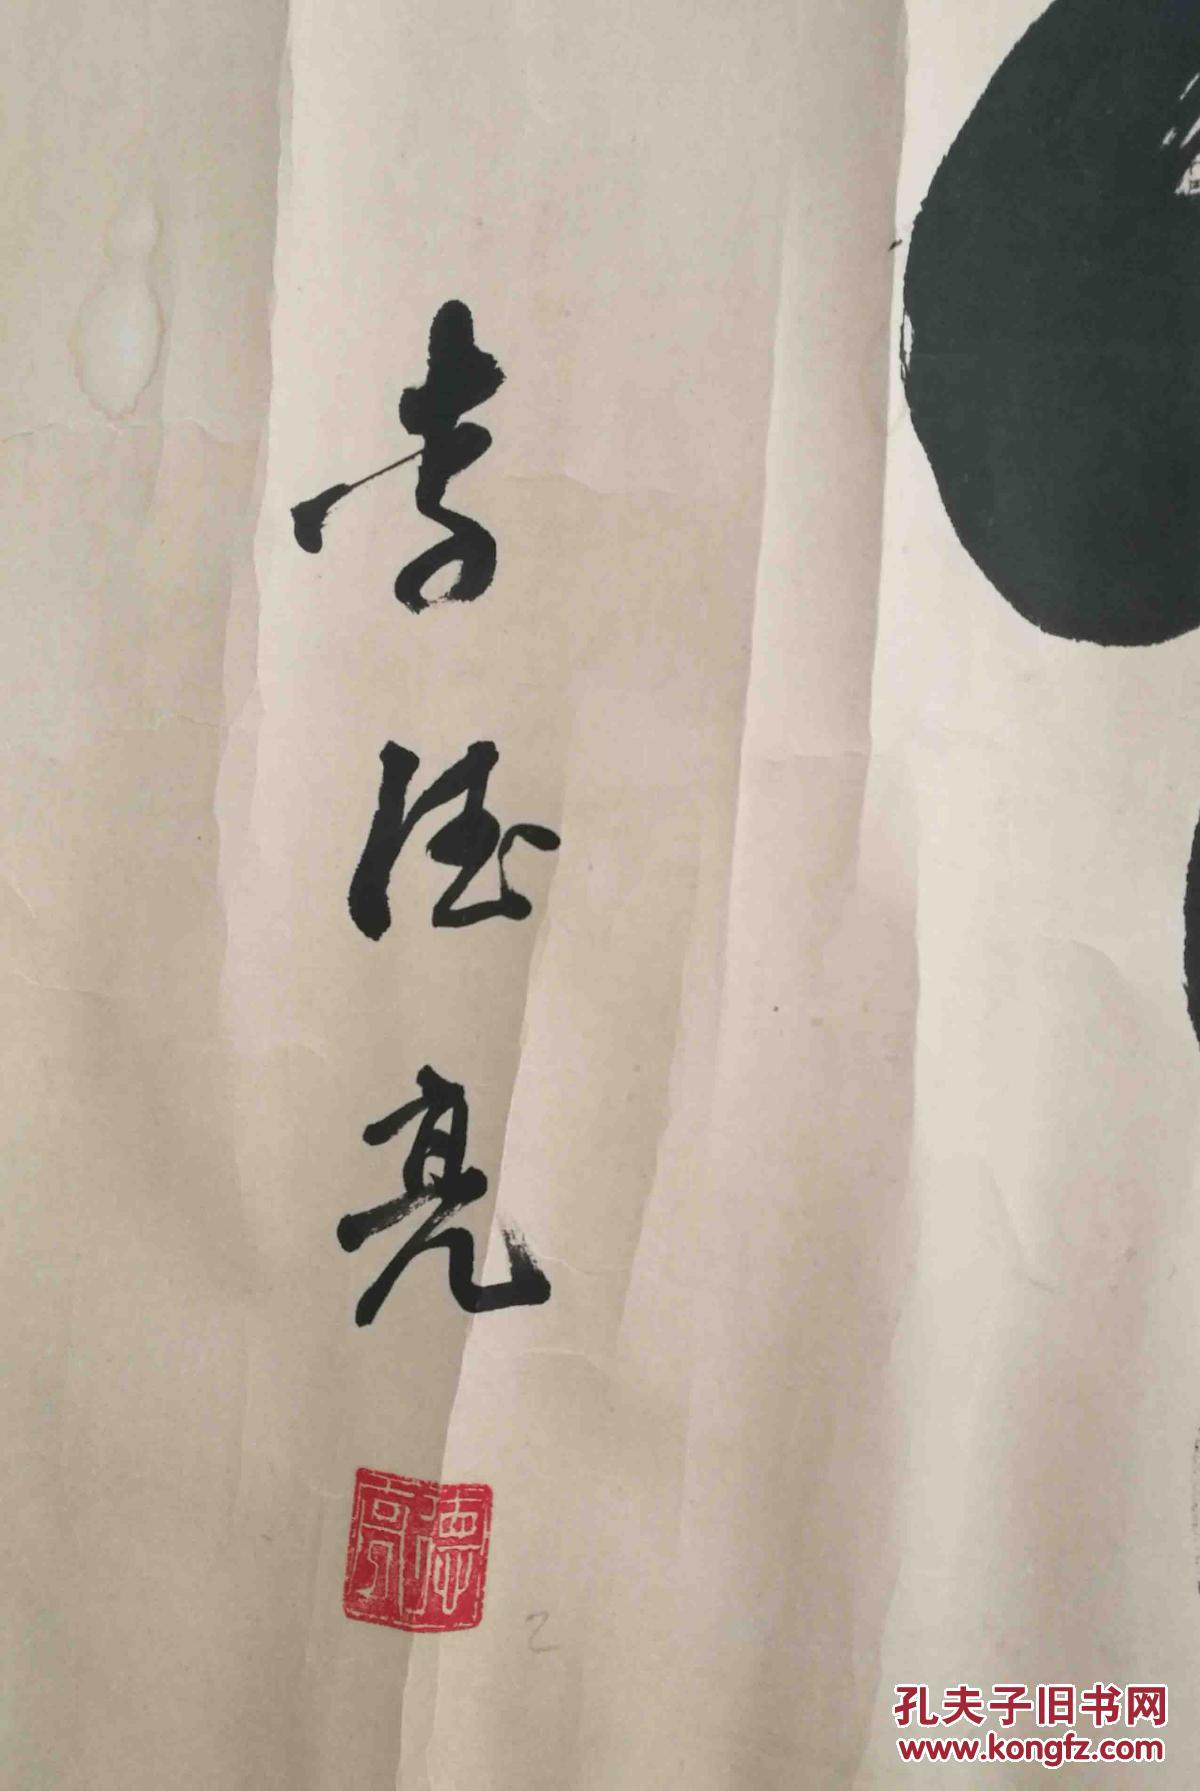 李德亮
德亮
乙
孔夫子旧书网
www.kongfz.com